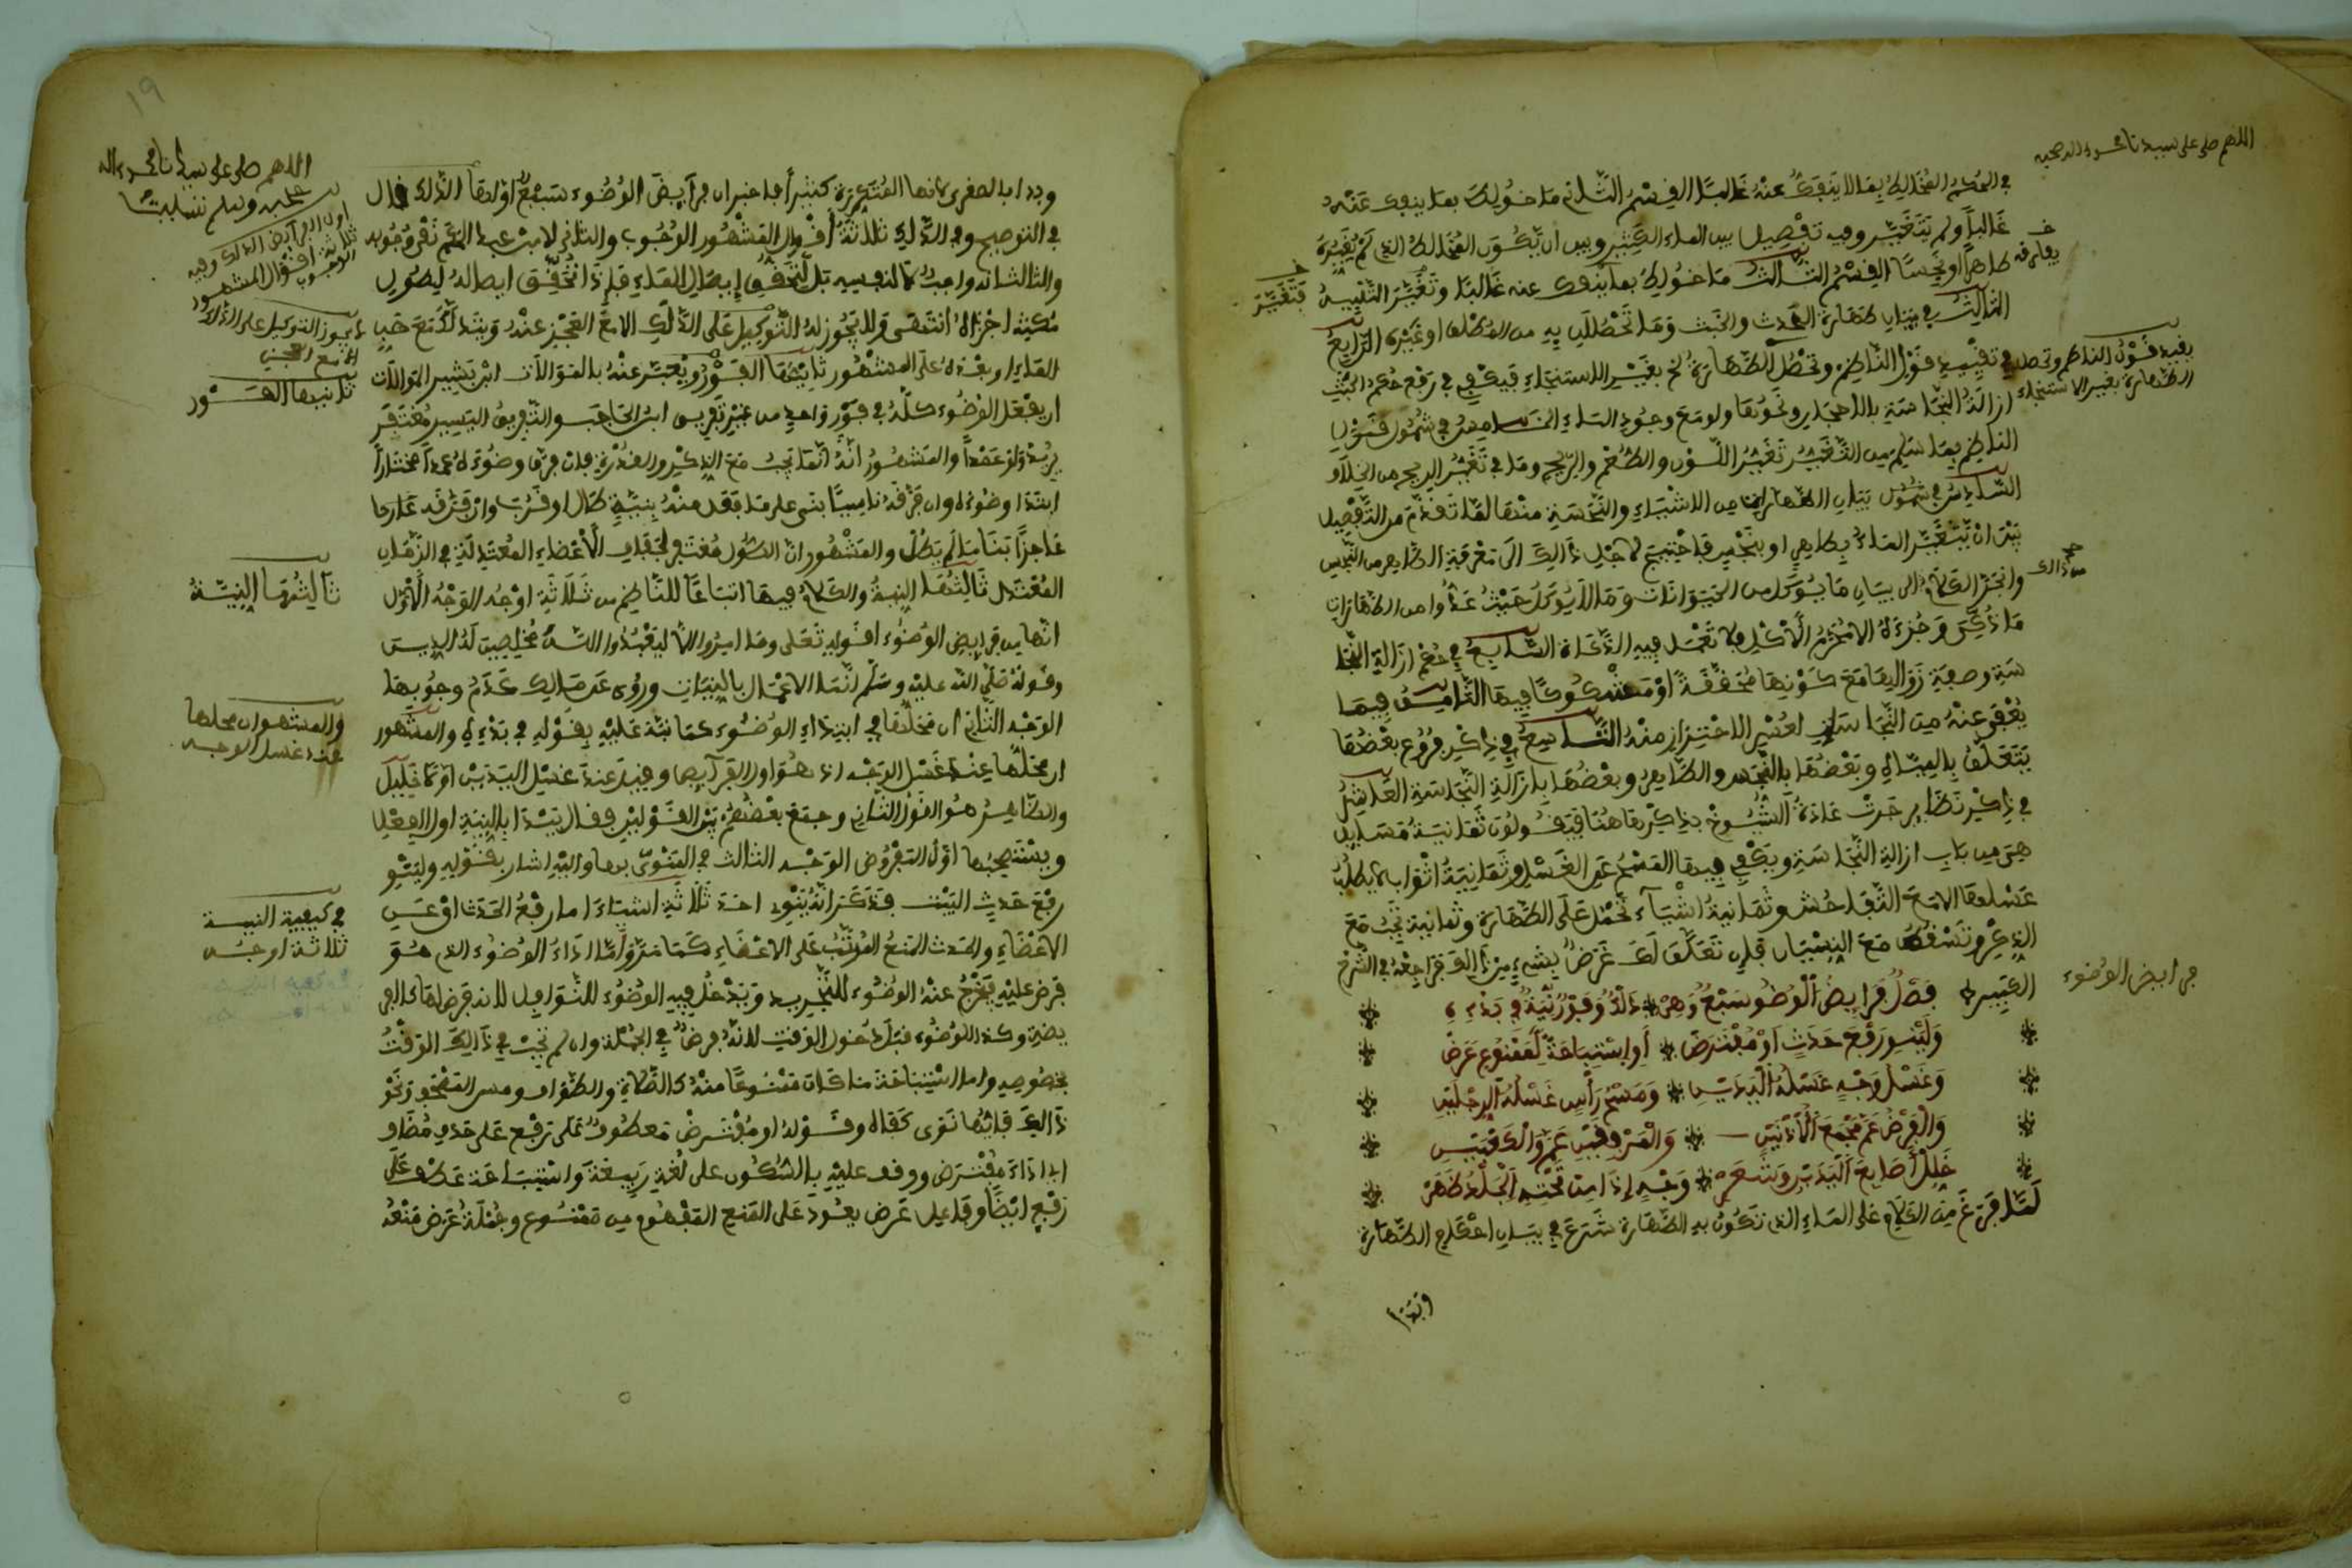 اللهم صل على سيدنا محمد واله وصحبه
في الحكم المخالط بما لا ينفك عنه غالبا القسم الثاني ما خولط بما ينفك عنه
غالبا ولم يتغير وفيه تفصيل بين الماء الكثير وبين ان يكون المخالط الذي لم يغيره
طاهرا او نجسا القسم الثالث ما خولط بما ينفك عنه غالبا وتغير التنبيه
الثالث في بيان طهارة الحدث والخبث وما تحصلان به من المطلق او غيره الرابع
في تقييد قول الناظم وتحصل الطهارة الخ بغير الاستنجاء فيكفي في رفع حكم الخبث
ازالة النجاسة بالاحجار ونحوها ولو مع وجود الماء الخامس في شمول قول
الناظم بما سلم من التغير تغير اللون والطعم والريح وما في تغير الريح من الخلاف
السادس في شمول بيان الطاهرات من الاشياء والنجسة منها لما تقدم من التفصيل
بين ان يتغير الماء بطاهر او بنجس فاحتيج لاجل ذالك الى معرفة الطاهر من النجس
وانجر الكلام الى بيان ما يوكل من الحيوانات وما لا يوكل حيث عدوا من الطاهرات
ما ذكي وجزءه الا محرم الاكل فلا تعمل فيه الذكاة السابع في حكم ازالة النجا
سة وصفة زوالها مع كونها محققة او مشكوكا فيها الثامن فيما
يعفى عنه من النجاسات لعسر الاحتراز منه التاسع في ذكر فروع بعضها
يتعلق بالمياه وبعضها بالنجس والطاهر وبعضها بازالة النجاسة العاشر
في ذكر نظاير جرت عادة الشيوخ بذكرها هنا فيقولون ثمانية مسايل
هي من باب ازالة النجاسة ويكفي فيها المسح عن الغسل وثمانية اثواب لا يطلب
غسلها الا مع التفاحش وثمانية اشياء تحمل على الطهارة وثمانية تجب مع
الذكر وتسقط مع النسيان فان تعلق لك غرض بشيء من ذالك فراجعه في الشرح
الكبير فصل فرايض الوضو سبع وهي دلك وفور نية في بدئه
ولينو رفع حدث او مفترض او استباحة لممنوع عرض
وغسل وجه غسله اليدين ومسح راس غسله الرجلين
والفرض عم مجمع الاذنين والمرفقين عم والكعبين
خلل اصابع اليدين وشعر وجه اذا من تحته الجلد ظهر
لما فرغ من الكلام على الماء الذي تكون به الطهارة شرع في بيان احكام الطهارة
وبدا
يفارقه
فتغير
يقيد قول الناظم وتحصل
الطهارة بغير الاستنجاء
من ذالك
فرايض الوضوء
١٩
اللهم صل على سيدنا محمد واله
عليه وسلم تسليما
وبدا بالصغرى لانها المتكررة كثيرا فاخبر ان فرايض الوضوء سبع اولها الدلك قال
في التوضيح وفي الدلك ثلاثة اقوال المشهور الوجوب والثاني لابن عبد الحكم نفي وجوبه
والثالث انه واجب لا لنفسه بل لتحقق ايصال الماء فاذا تحقق ايصاله لطول
مكثه اجزاه انتهى ولا يجوز له التوكيل على الدلك الا مع العجز عنه ويتدلك مع صب
الماء او بعده على المشهور ثانيها الفور ويعبر عنه بالموالاة ابن بشير الموالاة
ان يفعل الوضوء كله في فور واحد من غير تفريق ابن الحاجب والتفريق اليسير مغتفر
يريد ولو عمدا والمشهور انها تجب مع الذكر والقدرة فان فرق وضوءه عمدا مختارا
ابتدا وضوءه وان فرقه ناسيا بنى على ما فعل منه بنية طال او قرب وان فرقه
عاجزا بنا ما لم يطل والمشهور ان الطول معتبر بجفاف الاعضاء المعتدلة في الزمان
المعتدل ثالثها النية والكلام فيها اتباعا للناظم من ثلاثة اوجه الوجه الاول
انها من فرايض الوضوء لقوله تعلى وما امروا الا ليعبدوا الله مخلصين له الدين
وقوله صلى الله عليه وسلم انما الاعمال بالنيات وروي عن مالك عدم وجوبها
الوجه الثاني ان محلها في ابتداء الوضوء كما نبه عليه بقوله في بدئه والمشهور
ان محلها عند غسل الوجه اذ هو اول الفرايض وقيل عند غسل اليدين
والظاهر هو القول الثاني وجمع بعضهم بين القولين فقال يبدا بالنية اول الفعل
ويستصحبها اول المفروض الوجه الثالث في المنوي بها واليه اشار بقوله ولينو
رفع حدث البيت فذكر انه ينوي احد ثلاثة اشياء اما رفع الحدث عن
الاعضاء والحدث المنع المرتب على الاعضاء كما مر واما اداء الوضوء الذي هو
فرض عليه فيخرج عنه الوضوء للتجريد ويدخل فيه الوضوء للنوافل لانه فرض لها كالفر
يضة وكذا الوضوء قبل دخول الوقت لانه فرض في الجملة وان لم تجب في ذالك الوقت
بخصوصه واما استباحة ما كان ممنوعا منه كالصلاة والطواف ومس المصحف ونحو
ذالك فايها نوى كفاه وقوله او مفترض معطوف على رفع على حذف مضاف
اي اداء مفترض ووقف عليه بالسكون على لغة ربيعة واستباحة عطف على
رفع ايضا وفاعل عرض يعود على المنع المفهوم من ممنوع وجملة عرض منعه
اول الفرايض الدلك وفيه
ثلاثة اقوال المشهور
الوجوب
لا يجوز التوكيل على الدلك
الا مع العجز
ثانيها الفور
ثالثها النية
والمشهور ان محلها
عند غسل الوجه
في كيفية النية
ثلاثة اوجه